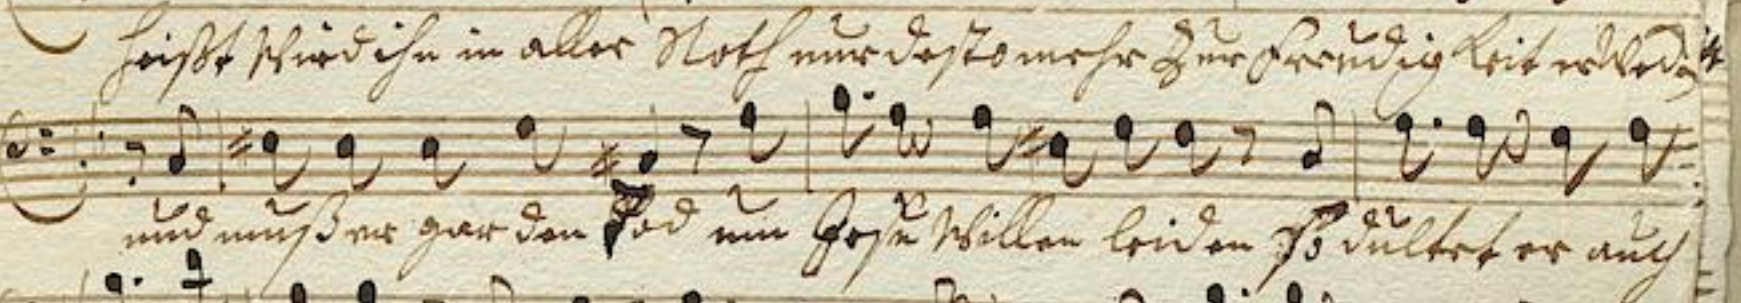 heißt wird ihn in aller Noth nur desto mehr zur Freudigkeit
und muß er gar den Tod um Jesu Willen leiden so dultet er auch